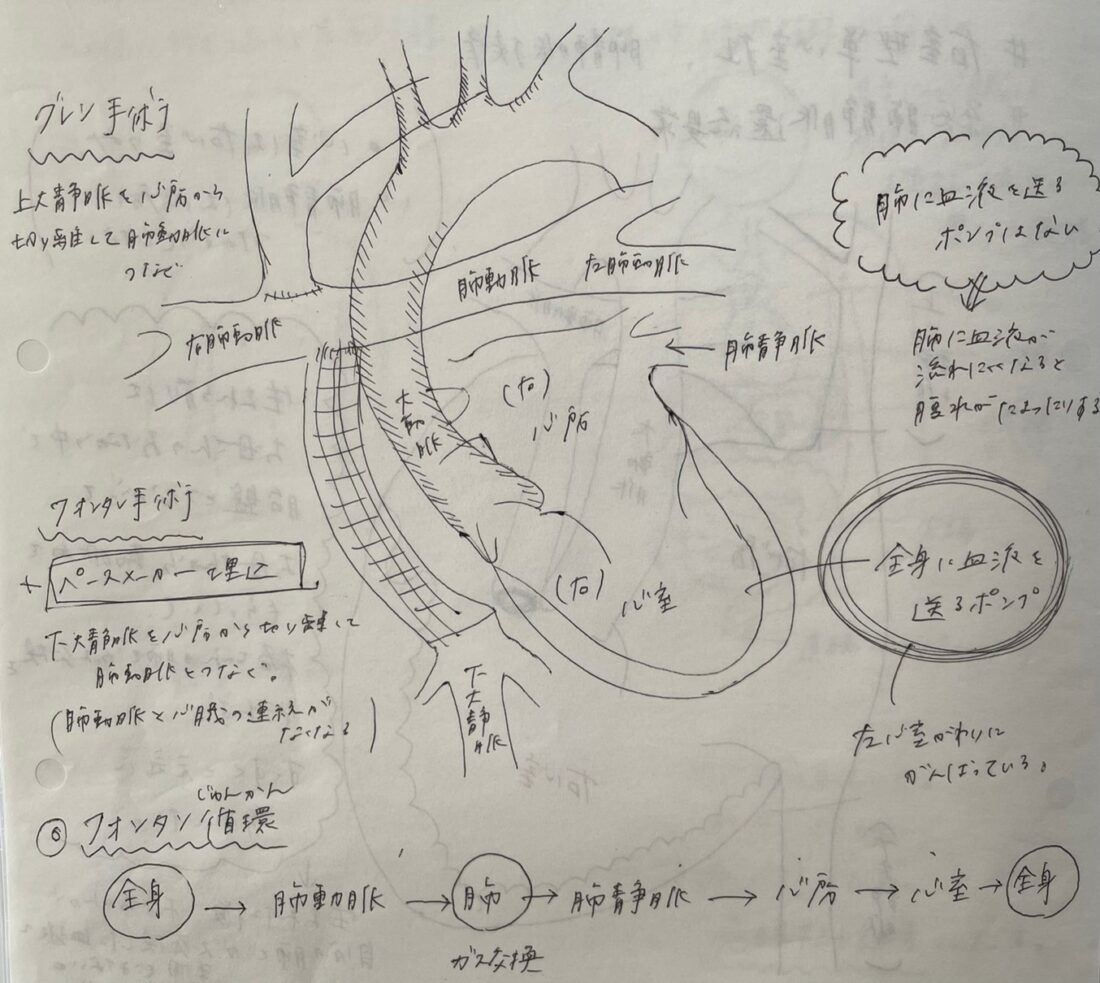 グレン手術
上大静脈を心房から
切り離して肺動脈に
つなぐ
肺動脈
左肺動脈
右肺動脈
肺静脈
大動脈
(右)
心房
(右)
心室
下大静脈
肺に血液を送る
ポンプはない
肺に血液が
流れにくくなると
腫れがたまったりする
全身に血液を
送るポンプ
左心室がわりに
がんばっている。
フォンタン手術
+ ペースメーカー埋込
下大静脈を心房から切り離して
肺動脈とつなぐ。
(肺動脈と心臓の連続が
なくなる)
じゅんかん
◎ フォンタン循環
全身 → 肺動脈 → 肺 → 肺静脈 → 心房 → 心室 → 全身
ガス交換